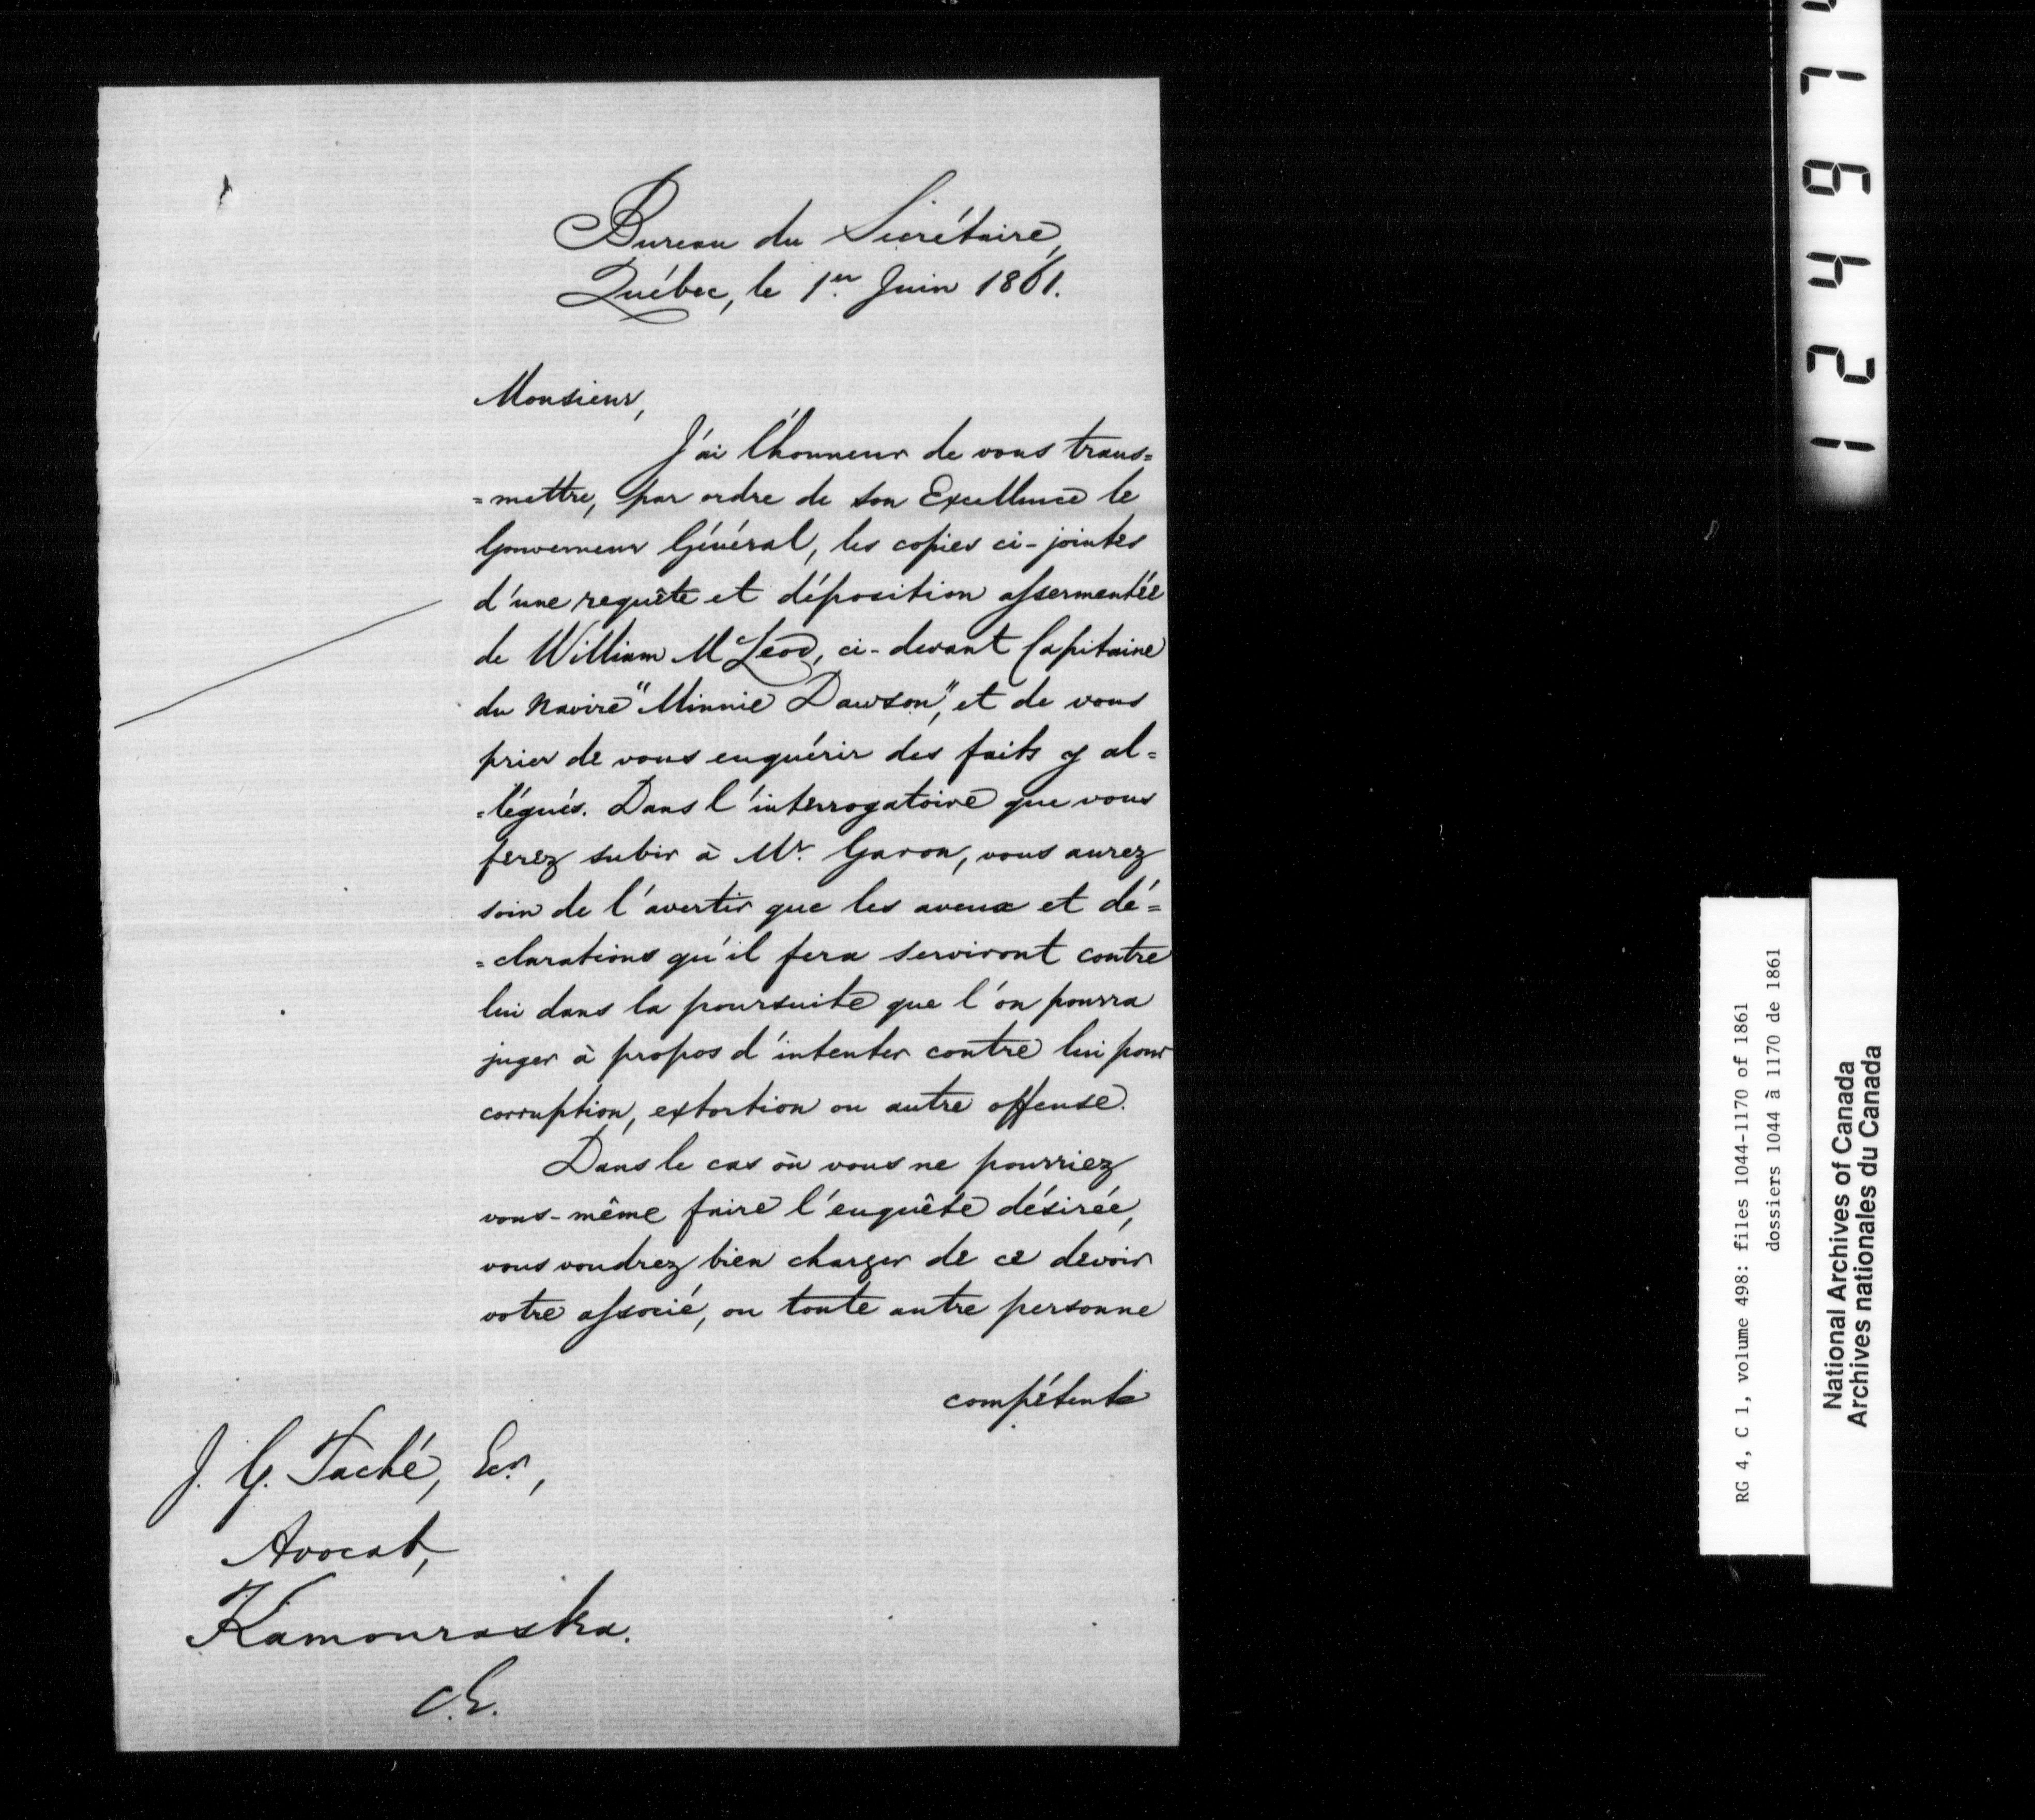 Bureau du Secrétaire,
Québec, le 1er Juin 1861.
Monsieur,
J'ai l'honneur de vous trans=
=mettre, par ordre de Son Excellence le
Gouverneur Général, les copies ci-jointes
d'une requête et déposition assermentée
de William McLeod, ci-devant Capitaine
du navire "Minnie Dawson", et de vous
prier de vous enquérir des faits y al=
=légués. Dans l'interrogatoire que vous
ferez subir à Mr. Garon, vous aurez
soin de l'avertir que les aveux et dé=
=clarations qu'il fera serviront contre
lui dans la poursuite que l'on pourra
juger à propos d'intenter contre lui pour
corruption, extortion ou autre offense.
Dans le cas où vous ne pourriez
vous-même faire l'enquête désirée,
vous voudrez bien charger de ce devoir
votre associé, ou toute autre personne
compétente
J. G. Taché, Ecr.,
Avocat,
Kamouraska.
C.E.
12497
RG 4, C 1, volume 498: files 1044-1170 of 1861
dossiers 1044 à 1170 de 1861
National Archives of Canada
Archives nationales du Canada